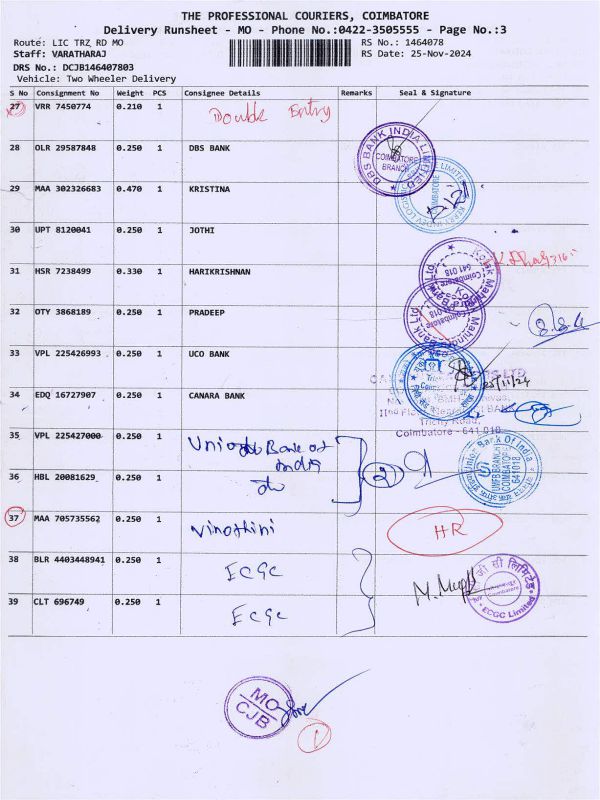 THE PROFESSIONAL COURIERS, COIMBATORE
Delivery Runsheet - MO - Phone No.:0422-3505555 - Page No.:3
Route: LIC TRZ RD MO
RS No.: 1464078
Staff: VARATHARAJ
RS Date: 25-Nov-2024
DRS No.: DCJB146407803
Vehicle: Two Wheeler Delivery
S No Consignment No Weight PCS Consignee Details Remarks Seal & Signature
27 VRR 7450774 0.210 1 Double Entry
28 OLR 29587848 0.250 1 DBS BANK
DBS BANK INDIA LIMITED
COIMBATORE
BRANCH
29 MAA 302326683 0.470 1 KRISTINA
COIMBATORE
30 UPT 8120041 0.250 1 JOTHI
31 HSR 7238499 0.330 1 HARIKRISHNAN
Kotak Mahindra Bank Ltd
Coimbatore
641 018
32 OTY 3868189 0.250 1 PRADEEP
Kotak Mahindra Bank Ltd
Coimbatore
641 018
33 VPL 225426993 0.250 1 UCO BANK
25/11/24
34 EDQ 16727907 0.250 1 CANARA BANK
Trichy Road,
Coimbatore - 641 018
35 VPL 225427000 0.250 1 Union Bank of
India
2
Union Bank Of India
COIMBATORE
641018
36 HBL 20081629 0.250 1 do
37 MAA 705735562 0.250 1 Vinothini HR
38 BLR 4403448941 0.250 1 ECGC
ECGC Limited
39 CLT 696749 0.250 1 ECGC
MO
CJB
1